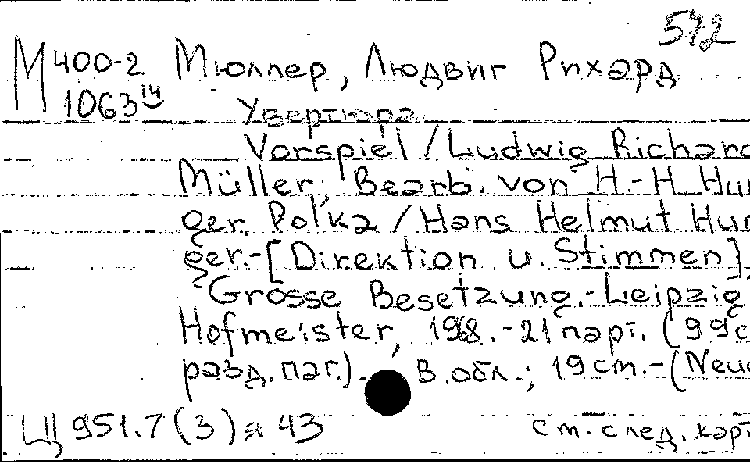 572
М 400-2 Мюллер, Людвиг Рихард
1063 Увертюра
Vorspiel / Ludwig Richard
Müller, Bearb. von H.-H. Hun
ger. Polka / Hans Helmut Hun
ger.-[Direktion u. Stimmen].
Grosse Besetzung.-Leipzig
Hofmeister, 198.-21 парт. (99 с
разд. паг.). В обл.; 19 cm.-(Neue
Щ 951.7(3)я 43 см. след. карт